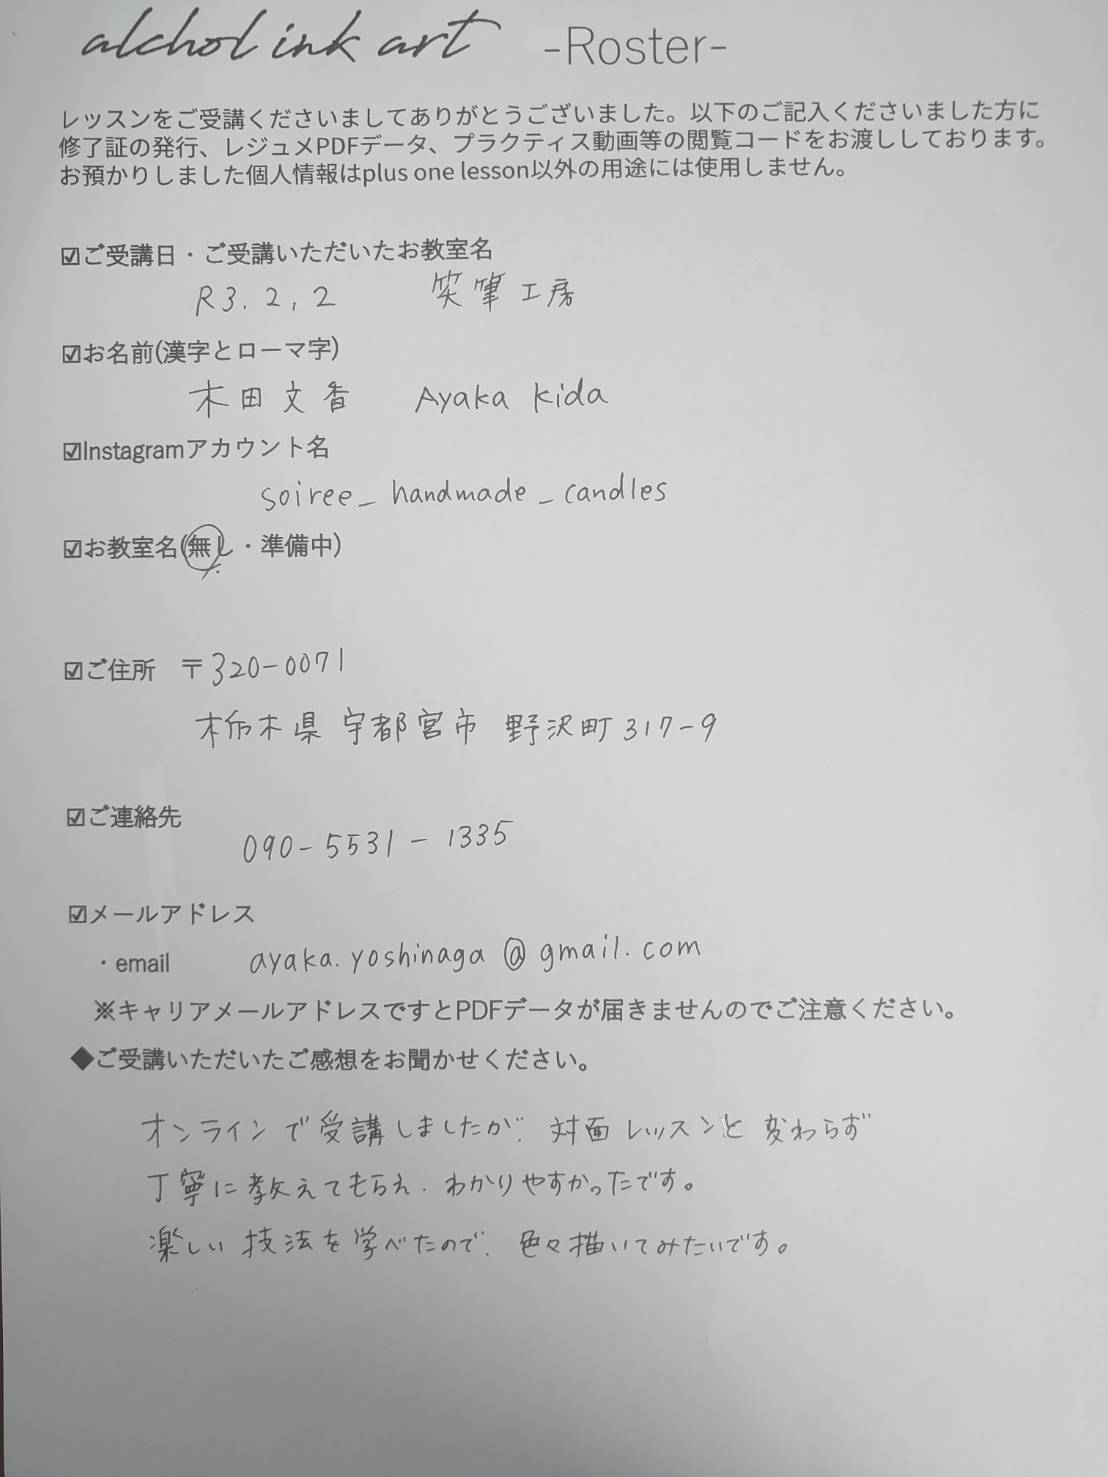 alchol ink art -Roster-
レッスンをご受講くださいましてありがとうございました。以下のご記入くださいました方に
修了証の発行、レジュメPDFデータ、プラクティス動画等の閲覧コードをお渡ししております。
お預かりしました個人情報はplus one lesson以外の用途には使用しません。
☑ご受講日・ご受講いただいたお教室名
R3.2,2 笑筆工房
☑お名前(漢字とローマ字)
木田文香 Ayaka kida
☑Instagramアカウント名
soiree_handmade_candles
☑お教室名(無し・準備中)
☑ご住所 〒320-0071
栃木県 宇都宮市 野沢町317-9
☑ご連絡先
090-5531-1335
☑メールアドレス
・email ayaka.yoshinaga@gmail.com
※キャリアメールアドレスですとPDFデータが届きませんのでご注意ください。
◆ご受講いただいたご感想をお聞かせください。
オンラインで受講しましたが、対面レッスンと変わらず
丁寧に教えてもらえ、わかりやすかったです。
楽しい技法を学べたので、色々描いてみたいです。